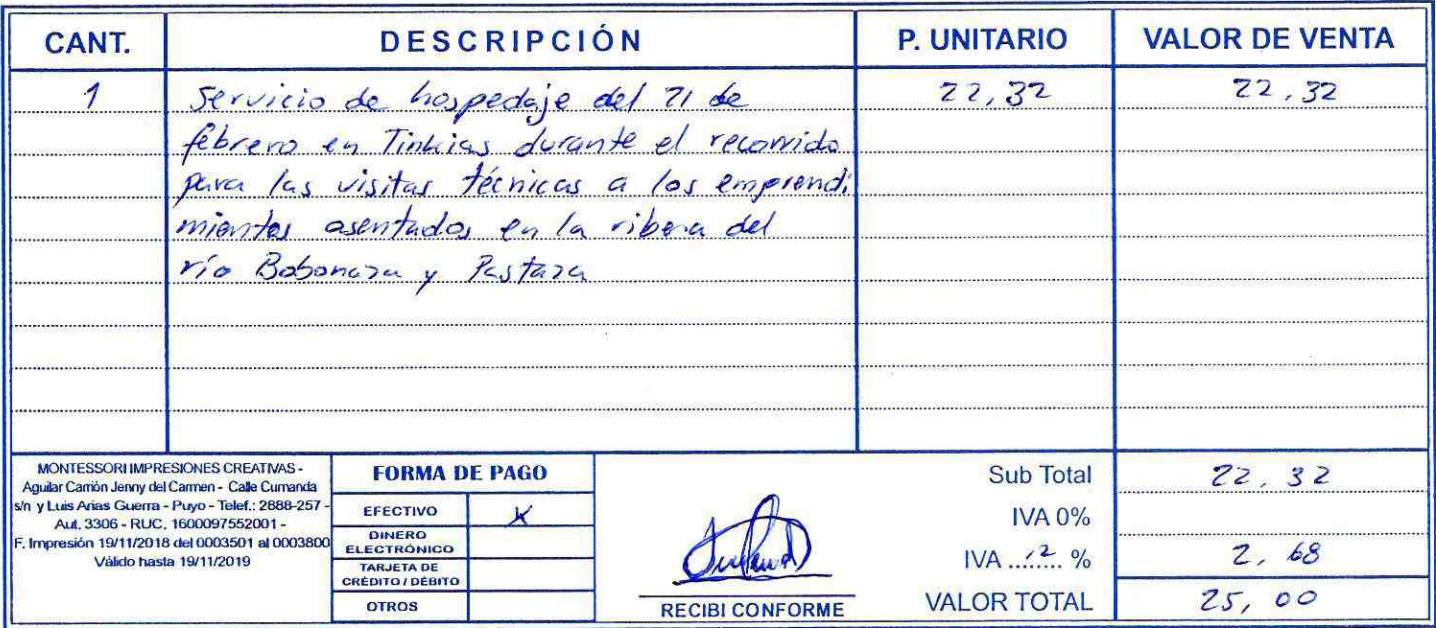 CANT. DESCRIPCIÓN P. UNITARIO VALOR DE VENTA
1 Servicio de hospedaje del 21 de 22,32 22,32
febrero en Tinkias durante el recorrido
para las visitas técnicas a los emprendi
mientos asentados en la ribera del
río Bobonaza y Pastaza
MONTESSORI IMPRESIONES CREATIVAS -
Aguilar Carrión Jenny del Carmen - Calle Cumanda
s/n y Luis Arias Guerra - Puyo - Telef.: 2888-257 -
Aut. 3306 - RUC. 1600097552001 -
F. Impresión 19/11/2018 del 0003501 al 0003800
Válido hasta 19/11/2019
FORMA DE PAGO
EFECTIVO X
DINERO ELECTRÓNICO
TARJETA DE CRÉDITO / DÉBITO
OTROS
RECIBI CONFORME
Sub Total 22,32
IVA 0%
IVA 12 % 2,68
VALOR TOTAL 25,00